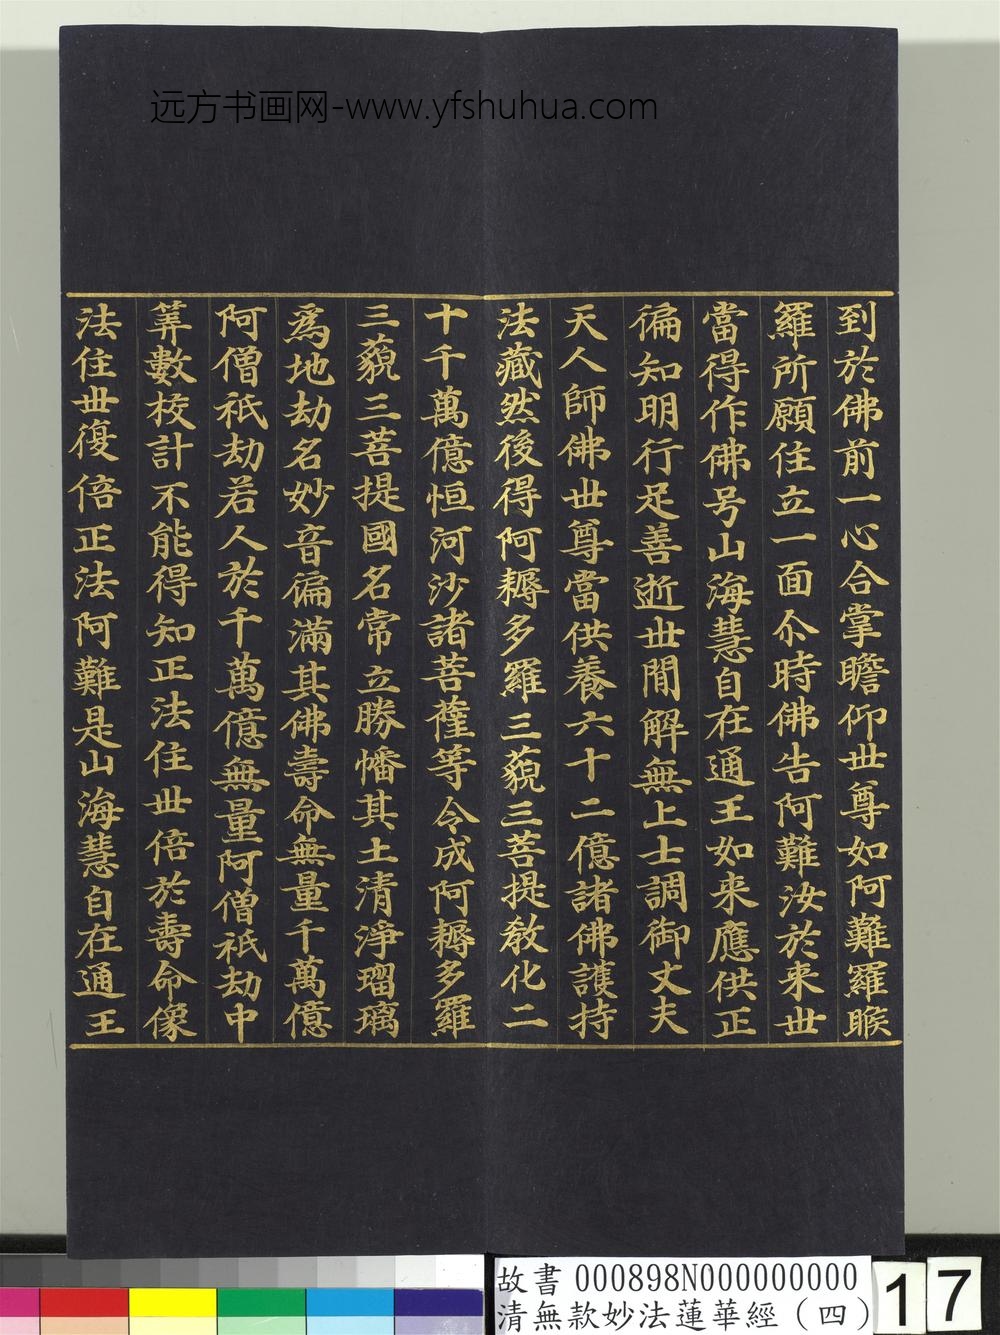 远方书画网-www.yfshuhua.com
到於佛前一心合掌瞻仰世尊如阿難羅睺
羅所願住立一面尒時佛告阿難汝於来世
當得作佛号山海慧自在通王如来應供正
徧知明行足善逝世間解無上士調御丈夫
天人師佛世尊當供養六十二億諸佛護持
法藏然後得阿耨多羅三藐三菩提教化二
十千萬億恒河沙諸菩薩等令成阿耨多羅
三藐三菩提國名常立勝幡其土清淨瑠璃
為地劫名妙音徧滿其佛壽命無量千萬億
阿僧祇劫若人於千萬億無量阿僧祇劫中
筭數校計不能得知正法住世倍於壽命像
法住世復倍正法阿難是山海慧自在通王
故書 000898N000000000
清無款妙法蓮華經(四)
17